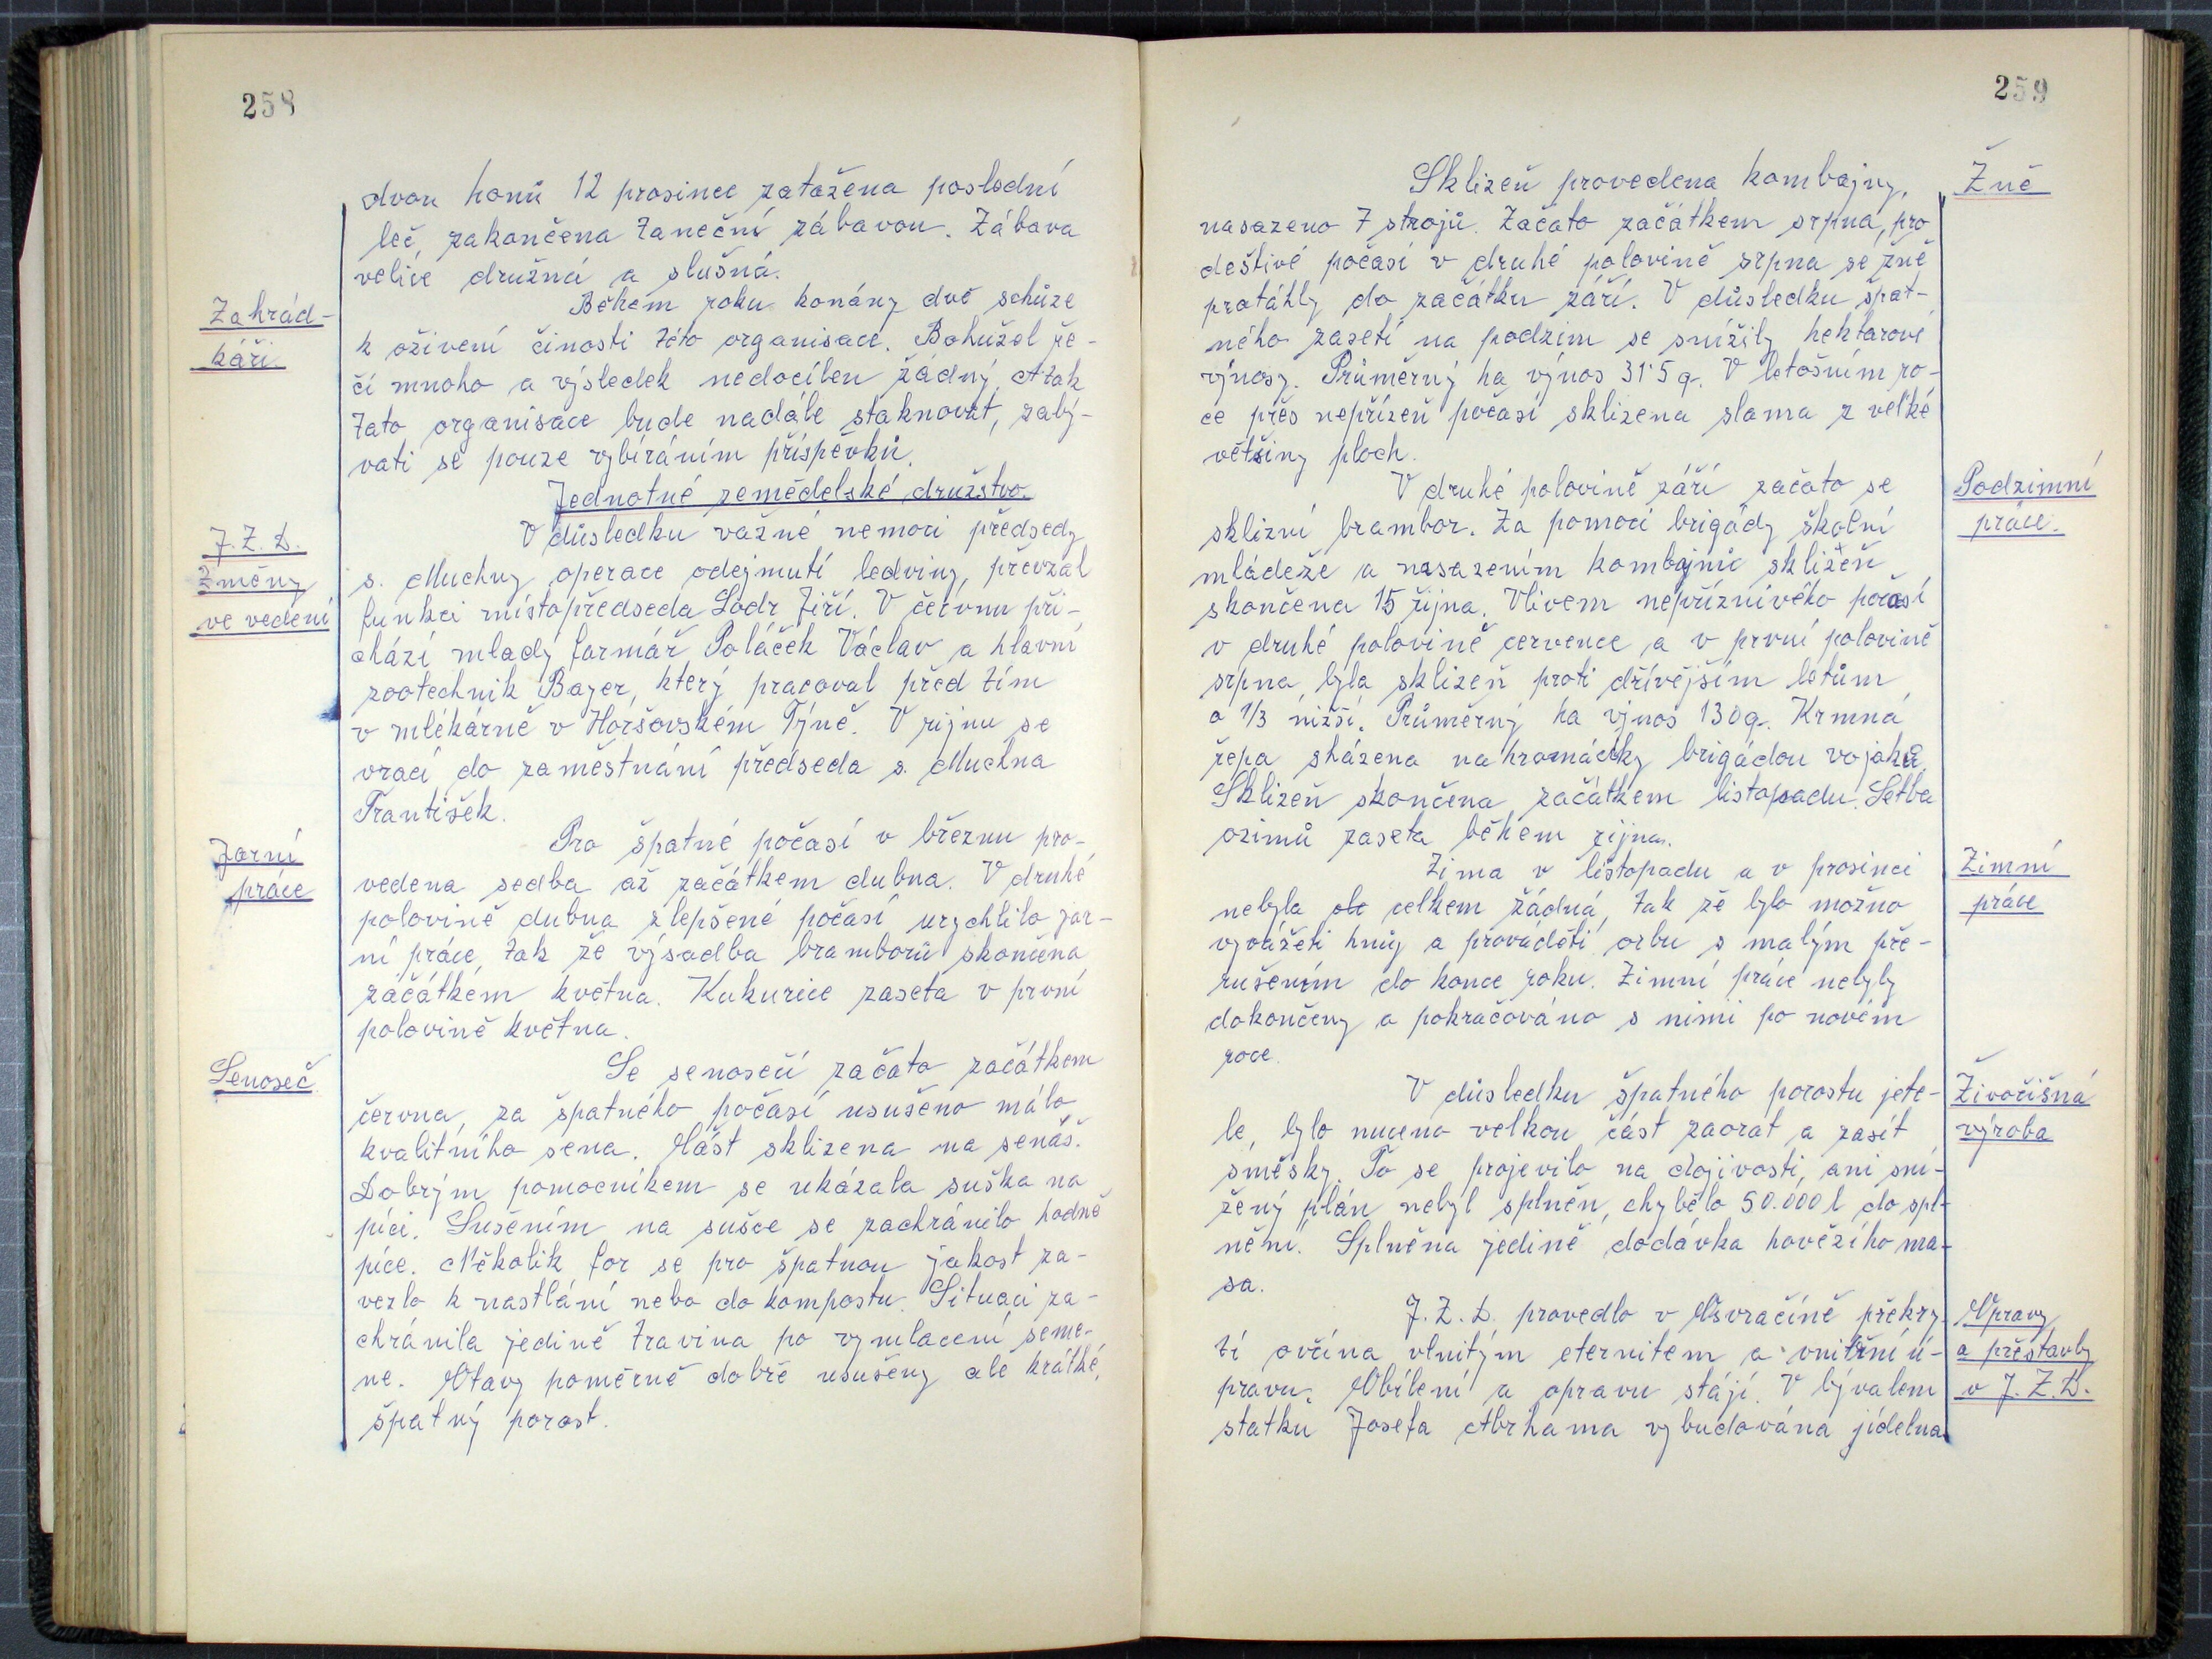 258
dvou honů 12 prosince zatažena poslední
leč, zakončena taneční zábavou. Zábava
velice družná a slušná.
Zahrád-
káři.
Během roku konány dvě schůze
k oživení činosti této organisace. Bohužel ře-
čí mnoho a výsledek nedocílen žádný. A tak
tato organisace bude nadále staknovat, zabý-
vati se pouze vybíráním příspěvků.
Jednotné zemědelské družstvo.
J.Z.D.
Změny
ve vedení
V důsledku važné nemoci předsedy
s. Muchny operace odejmutí ledviny, převzal
funkci místopředseda Lodr Jiří. V červnu při-
chází mladý farmář Poláček Václav a hlavní
zootechnik Bayer, který pracoval před tím
v mlékárně v Horšovském Týně. V rijnu se
vrací do zaměstnání předseda s. Muchna
František.
Jarní
práce
Pro špatné počasí v březnu pro-
vedena sedba až začátkem dubna. V druhé
polovině dubna zlepšené počasí urychlilo jar-
ní práce, tak že výsadba bramborů skončena
začátkem května. Kukurice zaseta v první
polovině května.
Senoseč
Se senosečí začato začátkem
června, za špatného počasí usušeno málo
kvalitního sena. Část sklizena na senáš.
Dobrým pomocníkem se ukázala suška na
píci. Sušením na sušce se zachránilo hodně
píce. Několik for se pro špatnou jakost za-
vezlo k nastlání nebo do kompostu. Situaci za-
chránila jedině travina po vymlacení seme-
ne. Otavy poměrně dobře usušeny ale krátké,
špatný porost.
259
Žně
Sklizeň provedena kombajny,
nasazeno 7 strojů. Začato začátkem srpna, pro
deštivé počasí v druhé polovině srpna se žně
protáhly do začátku září. V důsledku špat-
ného zasetí na podzim se snížily hektarové
výnosy. Průměrný ha výnos 31'5 q. V letošním ro-
ce přes nepřízeň počasí sklizena slama z velké
většiny ploch.
Podzimní
práce.
V druhé polovině září začato se
sklizní brambor. Za pomoci brigády školní
mládeže a nasazením kombajnů sklizeň
skončena 15 řijna. Vlivem nepříznivého počasí
v druhé polovině cervence a v první polovině
srpna, byla sklizeň proti dřívějším letům
o 1/3 nižší. Průměrný ha výnos 130 q. Krmná
řepa sházena na hromádky brigádou vojáků.
Sklizeň skončena začátkem listopadu. Setba
ozimů zaseta během rijna.
Zimní
práce
Zima v listopadu a v prosinci
nebyla celkem žádná, tak že bylo možno
vyvážeti hnůj a prováděti orbu s malým pře-
rušením do konce roku. Zimní práce nebyly
dokončeny a pokračováno s nimi po novém
roce.
Živočišná
výroba
V důsledku špatného porostu jete-
le, bylo nuceno velkou část zaorat a zasít
směsky. To se projevilo na dojivosti, ani sní-
žený plán nebyl splněn, chybělo 50.000 l do spl-
nění. Splněna jedině dodávka hovězího ma-
sa.
Opravy
a přestavby
v J.Z.D.
J.Z.D. provedlo v Ošvračíně překry-
tí ovčína vlnitým eternitem a vnitřní ú-
pravu. Obílení a opravu stájí. V bývalem
statku Josefa Abrhama vybudována jídelna